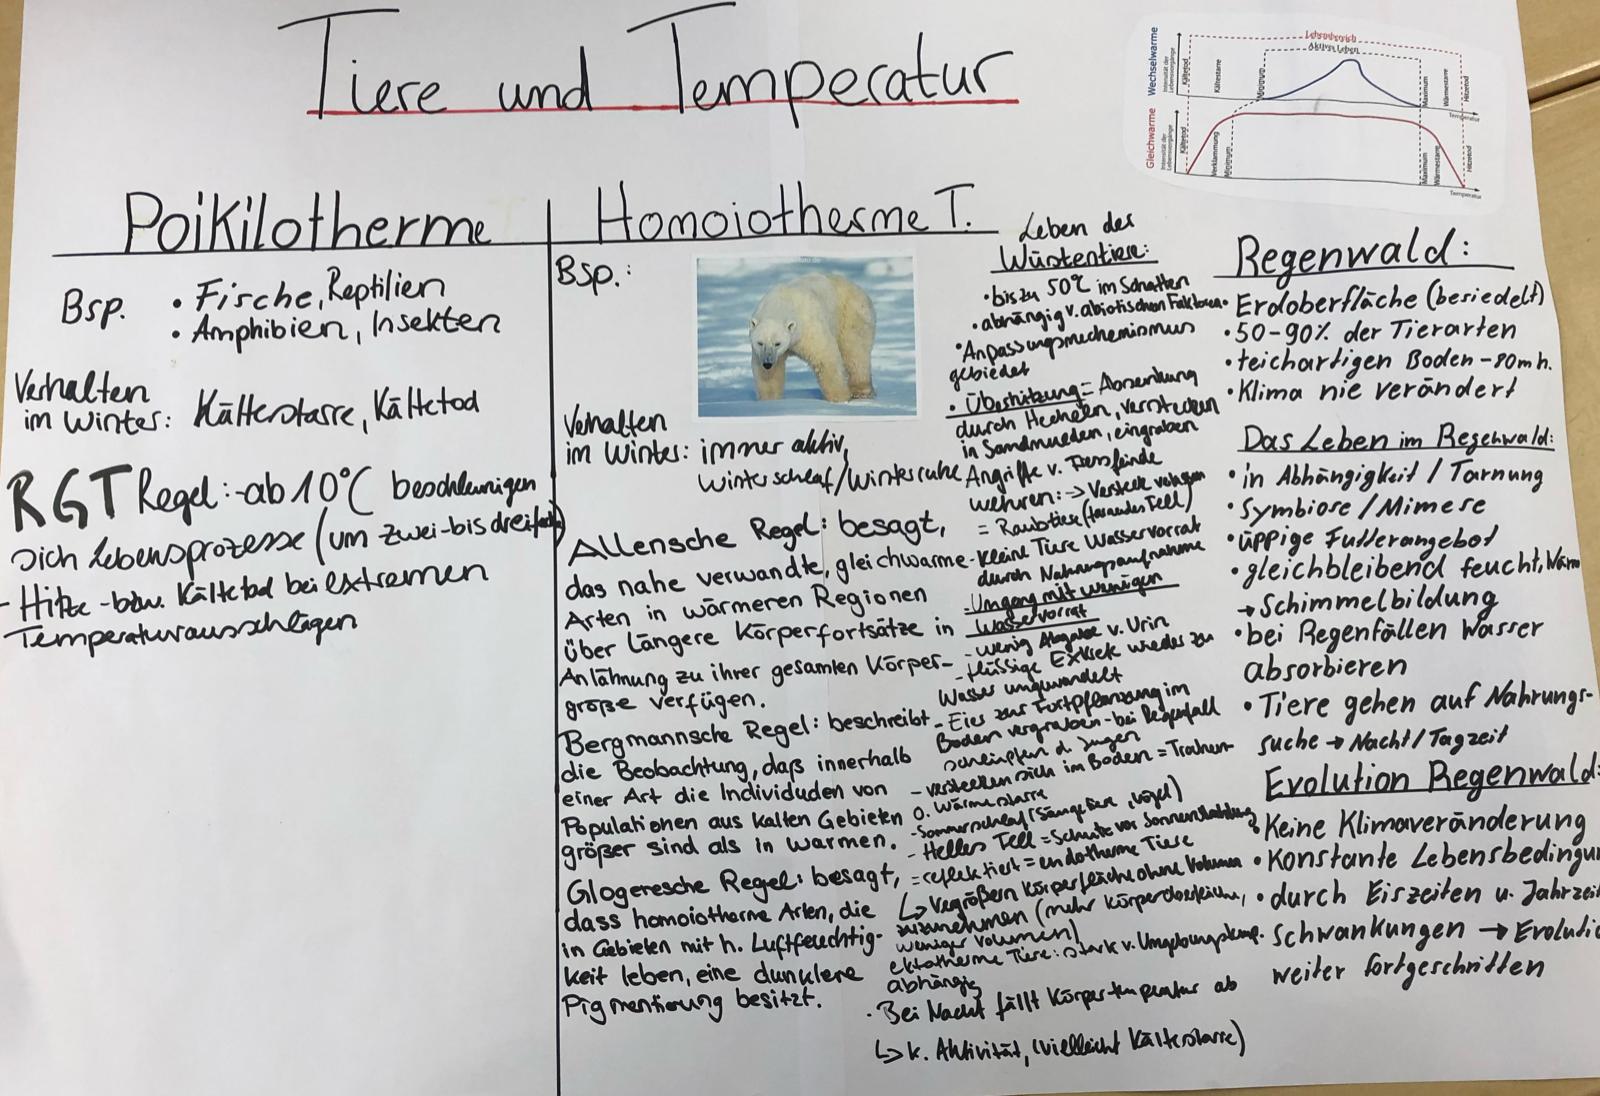 Tiere und Temperatur
Wechselwarme
Intensität der
Lebensvorgänge
Lebensbereich
Aktives Leben
Kältetod
Kältestarre
Minimum
Maximum
Wärmestarre
Hitzetod
Temperatur
Gleichwarme
Intensität der
Lebensvorgänge
Kältetod
Verklammung
Minimum
Maximum
Wärmestarre
Hitzetod
Temperatur
Poikilotherme
Bsp. • Fische, Reptilien
• Amphibien, Insekten
Verhalten
im Winter: Kältestarre, Kältetod
RGT Regel: -ab 10°C beschleunigen
sich Lebensprozesse (um zwei-bis dreifach)
- Hitze -bzw. Kältetod bei extremen
Temperaturausschlägen
Homoiotherme T.
Bsp.:
Verhalten
im Winter: immer aktiv,
Winterschlaf/Winterruhe
Allensche Regel: besagt,
das nahe verwandte, gleichwarme
Arten in wärmeren Regionen
über längere Körperfortsätze in
Anlähnung zu ihrer gesamten Körper-
größe verfügen.
Bergmannsche Regel: beschreibt
die Beobachtung, daß innerhalb
einer Art die Individuden von
Populationen aus kalten Gebieten
größer sind als in warmen.
Glogeresche Regel: besagt,
dass homoiotherme Arten, die
in Gebieten mit h. Luftfeuchtig-
keit leben, eine dunklere
Pigmentierung besitzt.
Leben der
Wüstentiere:
• bis zu 50°C im Schatten
• abhängig v. abiotischen Faktoren
• Anpassungsmechanismus
gebiedet
• Überhitzung = Absenkung
durch Hecheln, verstecken
in Sandmueden, eingraben
Angriffe v. Fressfeinde
wehren: -> Versteck
= Raubtiere (tarnendes Fell)
- Kleine Tiere Wasservorrat
durch Nahrungsaufnahme
- Umgang mit wenigen
Wasservorrat
- wenig Abgabe v. Urin
- flüssige Exkrek wieder zu
Wasser umgewandelt
- Eier zur Fortpflanzung im
Boden vergraben - bei Regenfall
schlüpfen d. Jungen
- verstecken sich im Boden =
o. Wärmestarre
- Sommerschlaf (Säugetiere, Vögel)
- Helles Fell = Schutz vor Sonnenstrahlung
= reflektiert = endotherme Tiere
↳ vegrößern Körperfläche ohne Volumen
zuzunehmen (mehr Körperoberfläche,
weniger Volumen)
ektotherme Tiere: stark v. Umgebungstemp.
abhängig
• Bei Nacht fällt Körpertemperatur ab
↳ k. Aktivität, (vielleicht Kältestarre)
Regenwald:
• Erdoberfläche (besiedelt)
• 50-90% der Tierarten
• teichartigen Boden - 80m h.
• Klima nie verändert
Das Leben im Regenwald:
• in Abhängigkeit / Tarnung
• Symbiose / Mimese
• üppige Futterangebot
• gleichbleibend feucht, Warm
→ Schimmelbildung
• bei Regenfällen Wasser
absorbieren
• Tiere gehen auf Nahrungs-
suche → Nacht / Tagzeit
Evolution Regenwald:
• Keine Klimaveränderung
• Konstante Lebensbedingu
• durch Eiszeiten u. Jahrzei
Schwankungen → Evolutio
weiter fortgeschritten